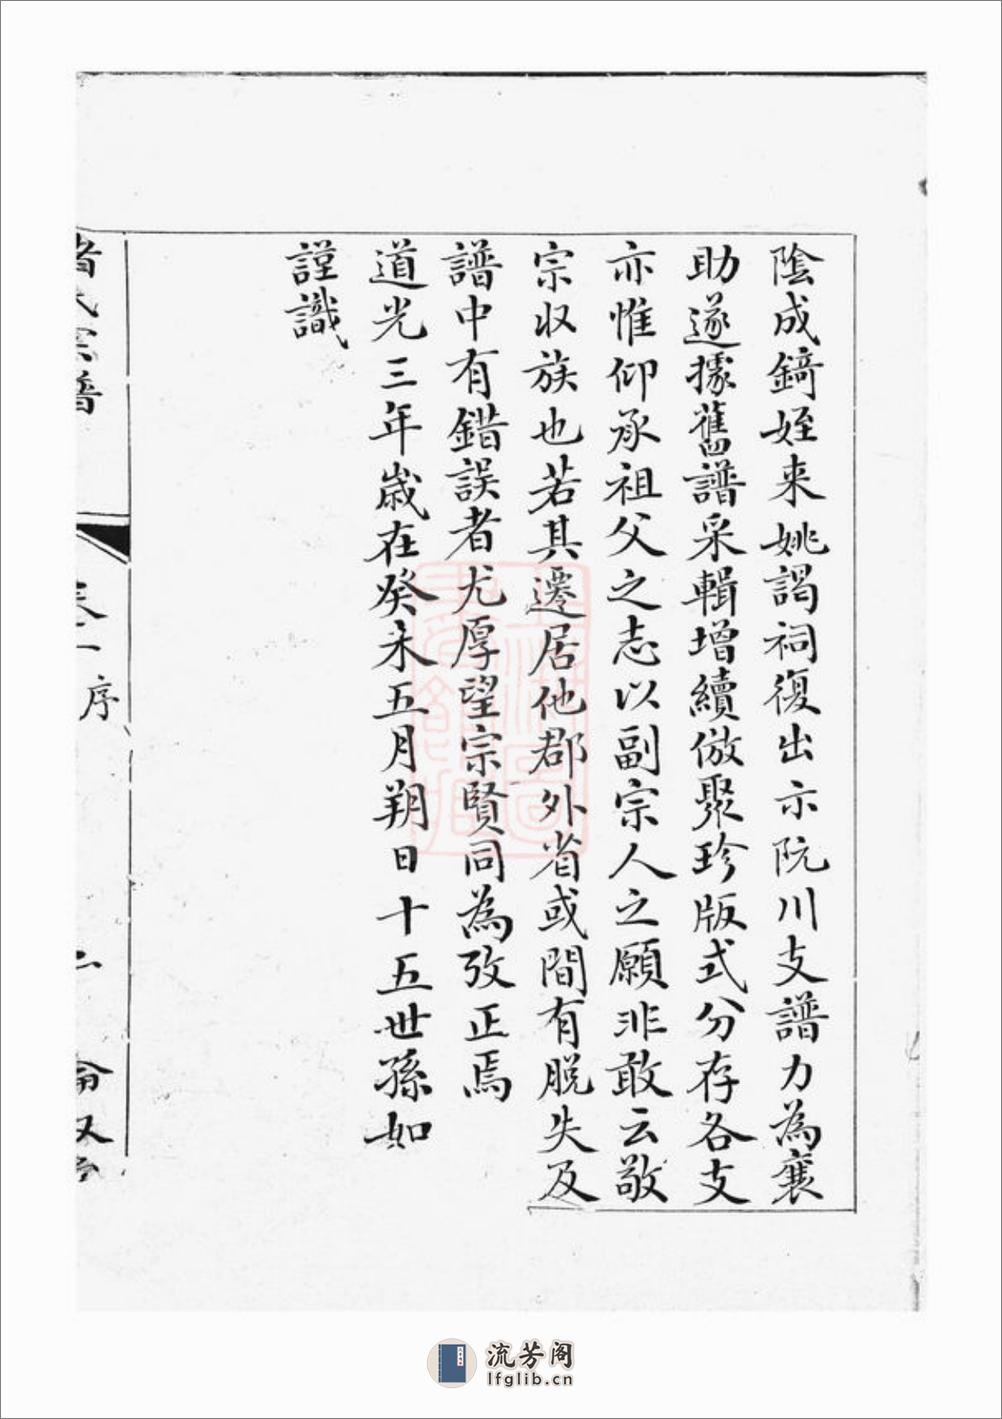 陰成錡姪来姚謁祠復出示阮川支譜力為襄
助遂據舊譜采輯增續倣聚珍版式分存各支
亦惟仰承祖父之志以副宗人之願非敢云敬
宗収族也若其遷居他郡外省或間有脱失及
譜中有錯誤者尤厚望宗賢同為攷正焉
道光三年歲在癸未五月朔日十五世孫如
謹識
氏宗譜
卷一 序
二
流芳阁
lfglib.cn